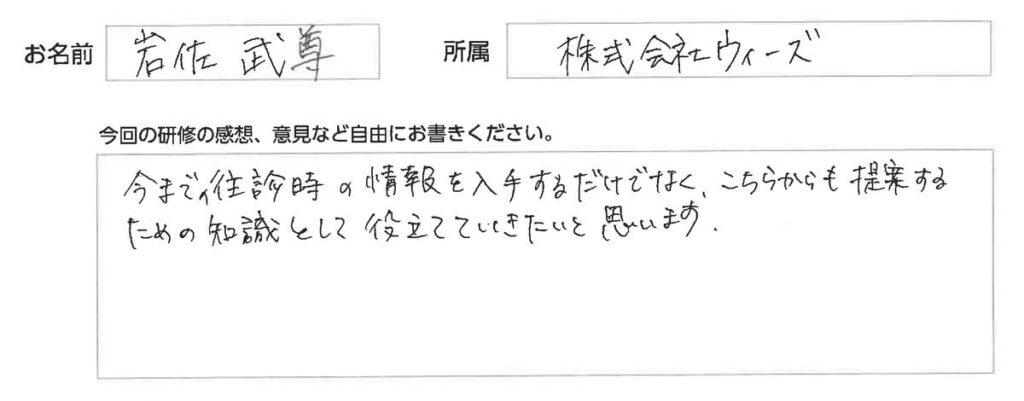 お名前 岩佐 武尊 所属 株式会社ウィーズ
今回の研修の感想、意見など自由にお書きください。
今までの往診時の情報を入手するだけでなく、こちらからも提案する
ための知識として役立てていきたいと思います.